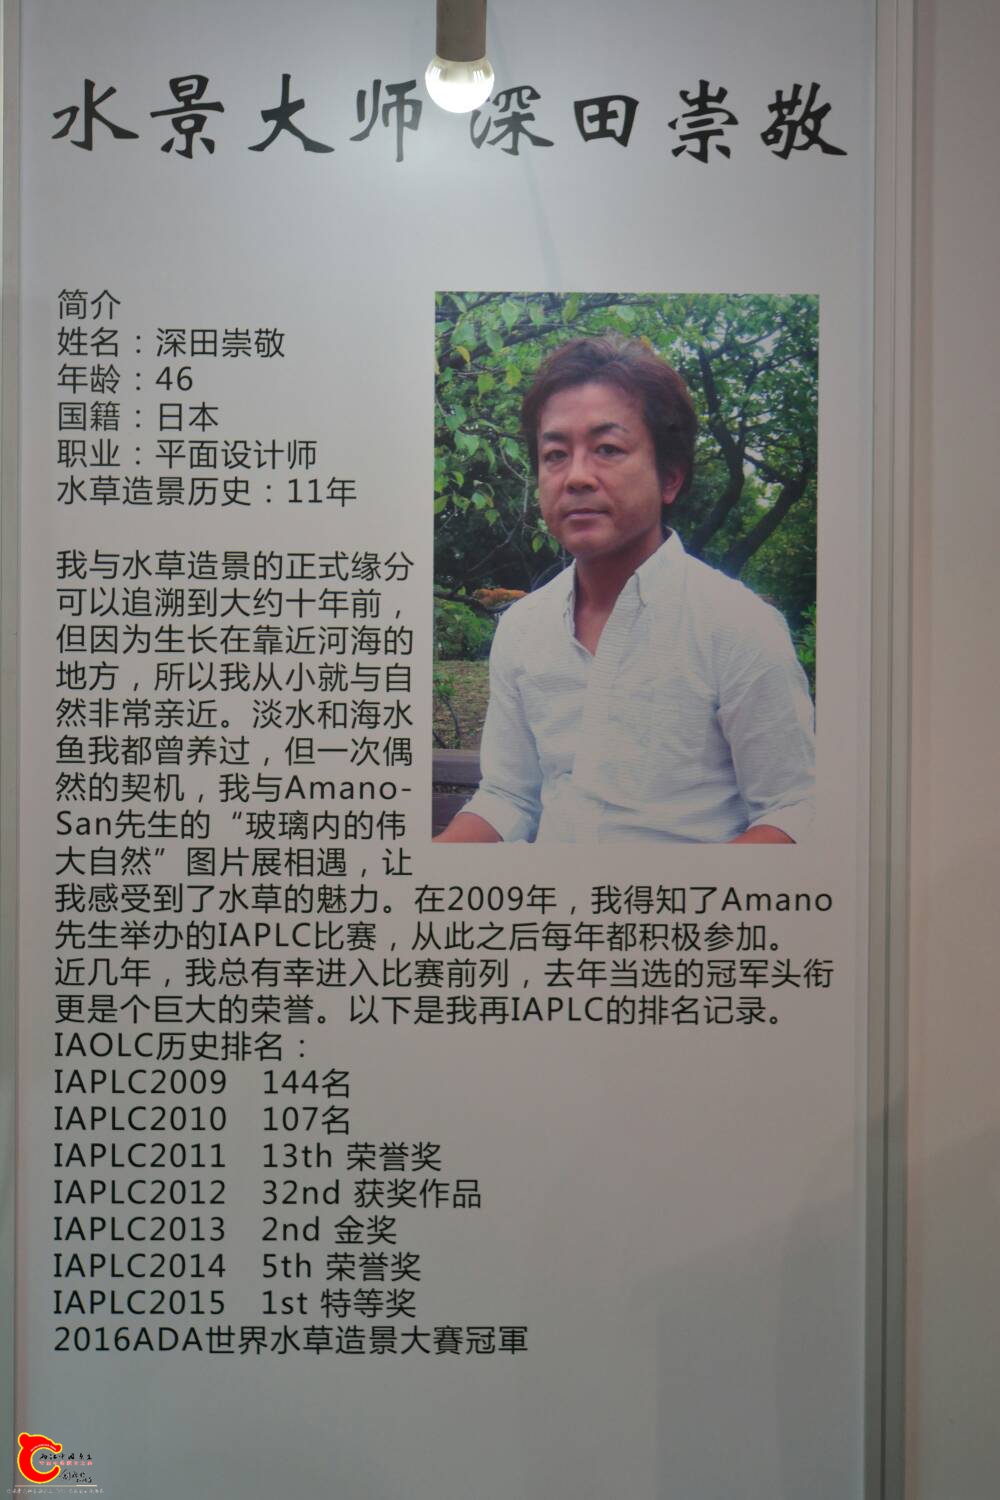 水景大师 深田崇敬
简介
姓名：深田崇敬
年龄：46
国籍：日本
职业：平面设计师
水草造景历史：11年
我与水草造景的正式缘分
可以追溯到大约十年前，
但因为生长在靠近河海的
地方，所以我从小就与自
然非常亲近。淡水和海水
鱼我都曾养过，但一次偶
然的契机，我与Amano-
San先生的“玻璃内的伟
大自然”图片展相遇，让
我感受到了水草的魅力。在2009年，我得知了Amano
先生举办的IAPLC比赛，从此之后每年都积极参加。
近几年，我总有幸进入比赛前列，去年当选的冠军头衔
更是个巨大的荣誉。以下是我再IAPLC的排名记录。
IAOLC历史排名：
IAPLC2009 144名
IAPLC2010 107名
IAPLC2011 13th 荣誉奖
IAPLC2012 32nd 获奖作品
IAPLC2013 2nd 金奖
IAPLC2014 5th 荣誉奖
IAPLC2015 1st 特等奖
2016ADA世界水草造景大賽冠軍